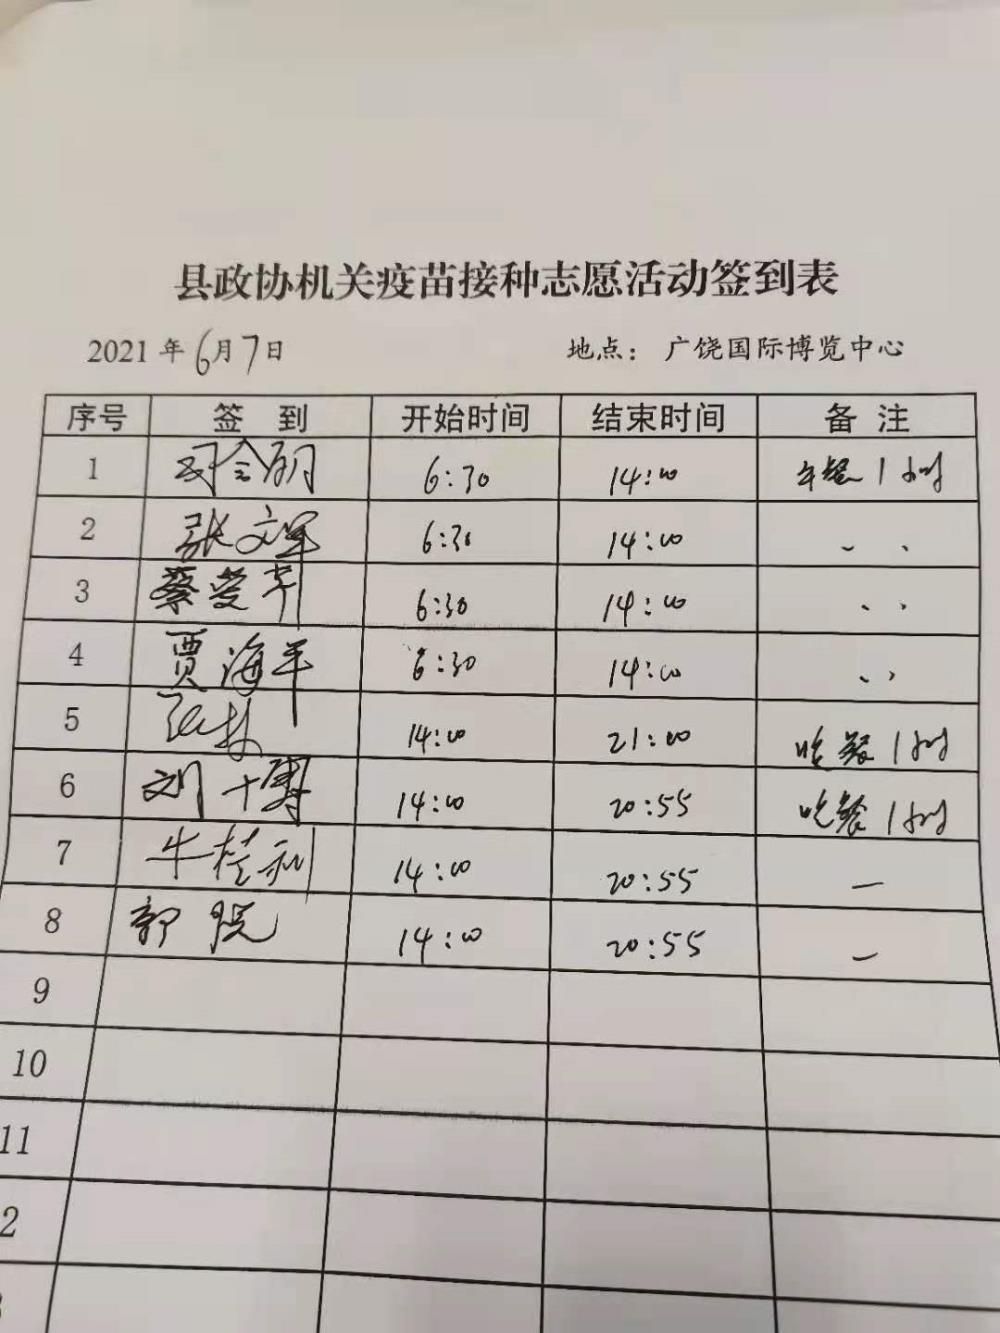 县政协机关疫苗接种志愿活动签到表
2021年6月7日 地点：广饶国际博览中心
序号 签 到 开始时间 结束时间 备 注
1 6:30 14:00 午餐1小时
2 张文军 6:30 14:00 〃
3 蔡爱芹 6:30 14:00 〃
4 贾海平 6:30 14:00 〃
5 14:00 21:00 吃餐1小时
6 刘十博 14:00 20:55 吃餐1小时
7 牛桂利 14:00 20:55 —
8 郭悦 14:00 20:55 —
9
10
11
2